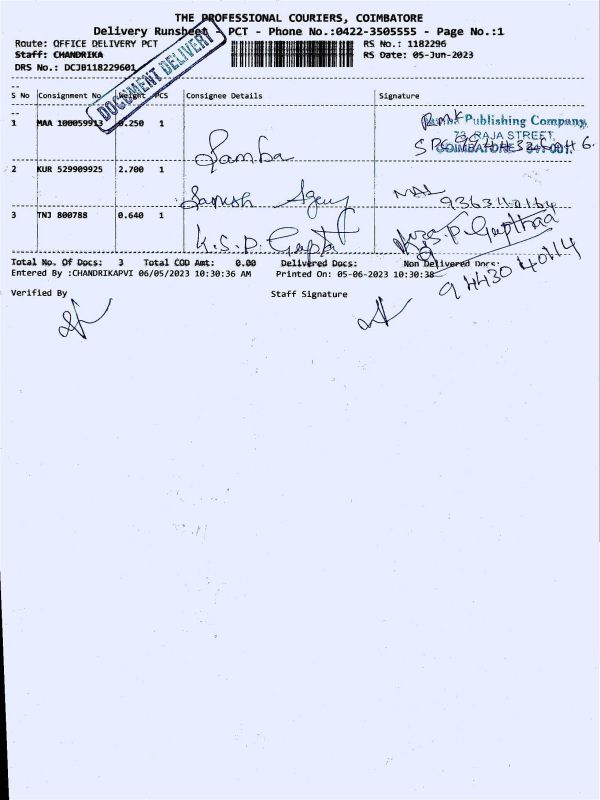 THE PROFESSIONAL COURIERS, COIMBATORE
Delivery Runsheet - PCT - Phone No.:0422-3505555 - Page No.:1
Route: OFFICE DELIVERY PCT
RS No.: 1182296
Staff: CHANDRIKA
RS Date: 05-Jun-2023
DRS No.: DCJB118229601
DOCUMENT DELIVERY
S No Consignment No Weight PCS Consignee Details Signature
1 MAA 100059913 0.250 1
Publishing Company,
73, RAJA STREET,
COIMBATORE - 641 001.
Samba
2 KUR 529909925 2.700 1
Agency
MAL
3 TNJ 800788 0.640 1
K.S.P. Gupta
Total No. Of Docs: 3 Total COD Amt: 0.00 Delivered Docs: Non Delivered Docs:
Entered By :CHANDRIKAPVI 06/05/2023 10:30:36 AM Printed On: 05-06-2023 10:30:38
94430 40114
Verified By Staff Signature